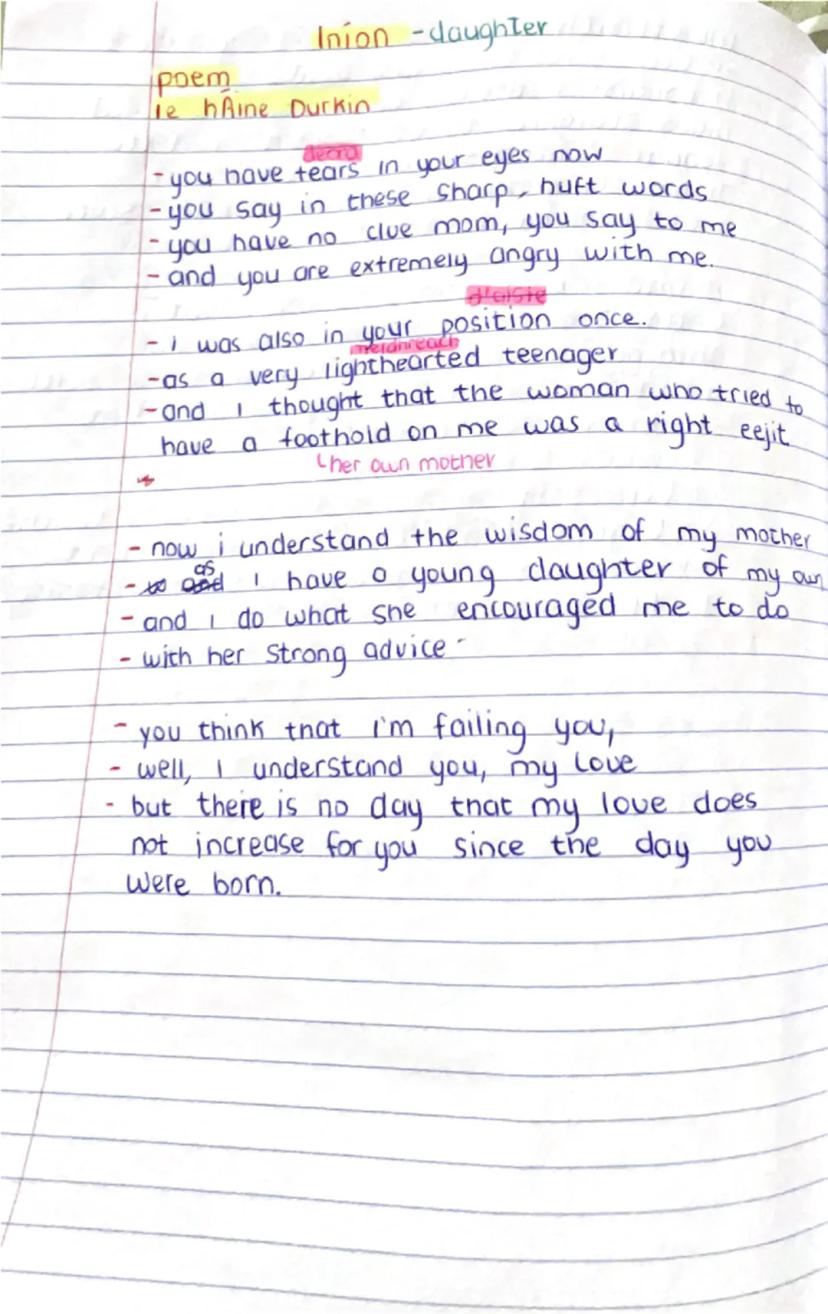 Iníon - daughter
poem
le hÁine Durkin
deora
- you have tears in your eyes now
- you say in these sharp, huft words
- you have no clue mom, you say to me
- and you are extremely angry with me.
d'áiste
- i was also in your position once.
meidhreach
- as a very lighthearted teenager
- and i thought that the woman who tried to
have a foothold on me was a right eejit
her own mother
- now i understand the wisdom of my mother
- as i have a young daughter of my own
- and i do what she encouraged me to do
- with her strong advice -
- you think that i'm failing you,
- well, i understand you, my love
- but there is no day that my love does
not increase for you since the day you
were born.